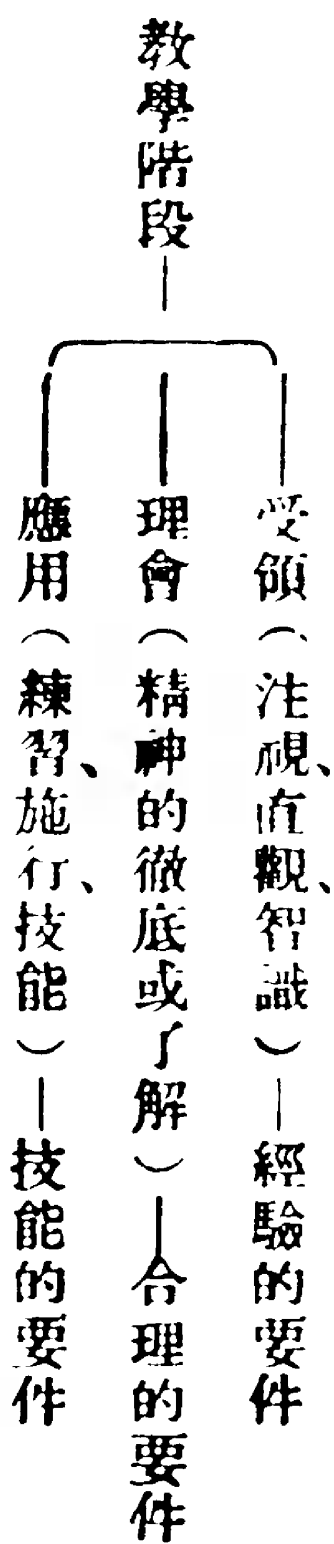 教學階段
受領（注視、直觀、智識）—經驗的要件
理會（精神的徹底或了解）—合理的要件
應用（練習、施行、技能）—技能的要件